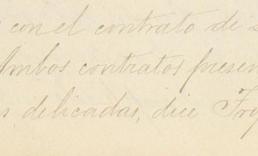 con el contrato de
Ambos contratos presen
s delicadas, dice Fro